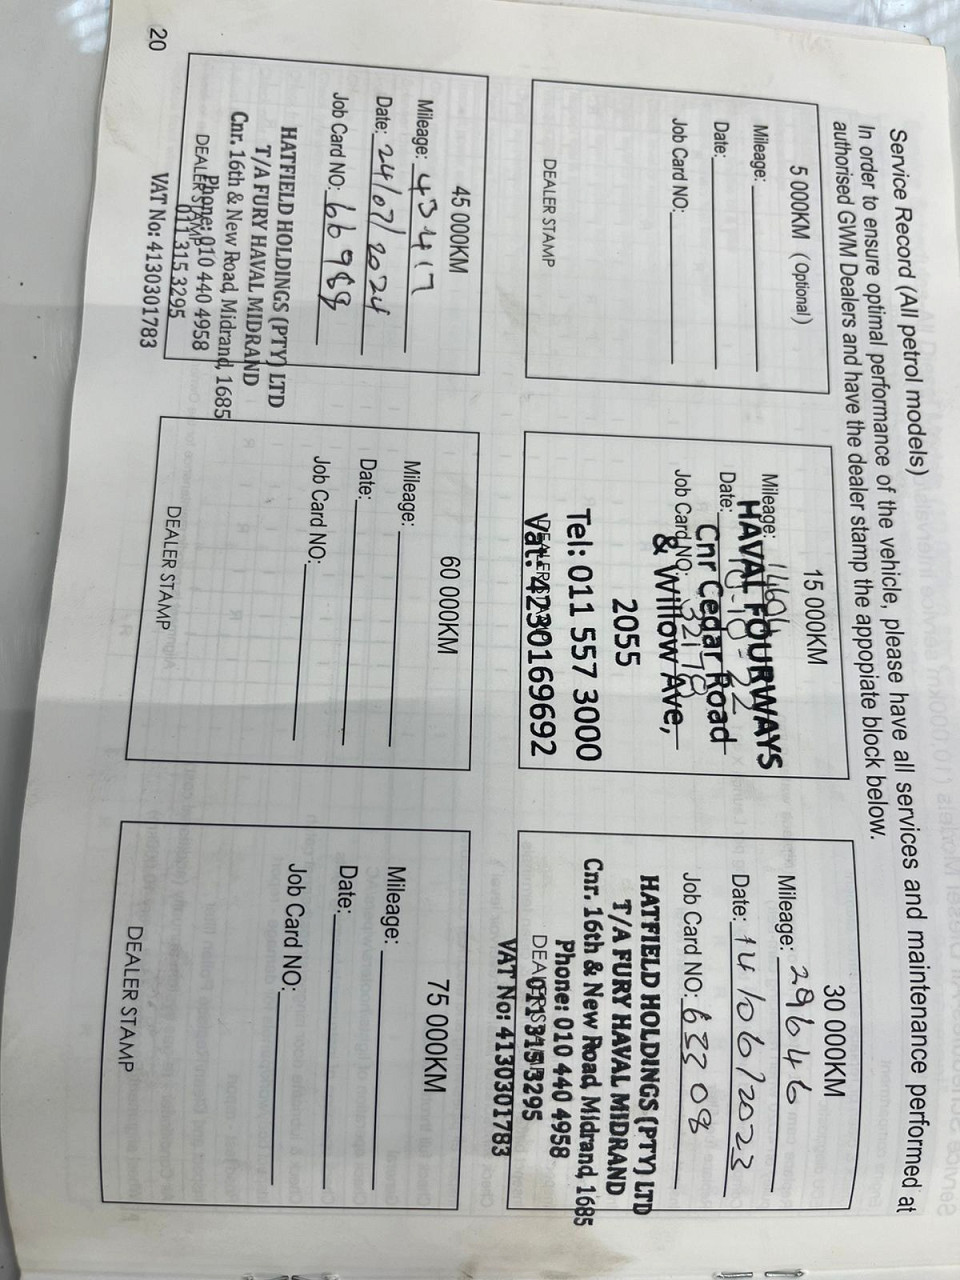 Service Record (All petrol models)
In order to ensure optimal performance of the vehicle, please have all services and maintenance performed at
authorised GWM Dealers and have the dealer stamp the appopiate block below.
5 000KM (Optional)
Mileage:
Date:
Job Card NO:
DEALER STAMP
15 000KM
Mileage:
HAVAL FOURWAYS
Date:
Cnr Cedar Road
Job Card NO: 32178
& Willow Ave,
2055
Tel: 011 557 3000
DEALER STAMP
Vat: 4230169692
30 000KM
Mileage: 29646
Date: 14/06/2023
Job Card NO: 63308
HATFIELD HOLDINGS (PTY) LTD
T/A FURY HAVAL MIDRAND
Cnr. 16th & New Road, Midrand, 1685
Phone: 010 440 4958
DEALER STAMP
011 315 3295
VAT No: 4130301783
45 000KM
Mileage: 43417
Date: 24/07/2024
Job Card NO: 66988
HATFIELD HOLDINGS (PTY) LTD
T/A FURY HAVAL MIDRAND
Cnr. 16th & New Road, Midrand, 1685
Phone: 010 440 4958
DEALER STAMP
011 315 3295
VAT No: 4130301783
60 000KM
Mileage:
Date:
Job Card NO:
DEALER STAMP
75 000KM
Mileage:
Date:
Job Card NO:
DEALER STAMP
20